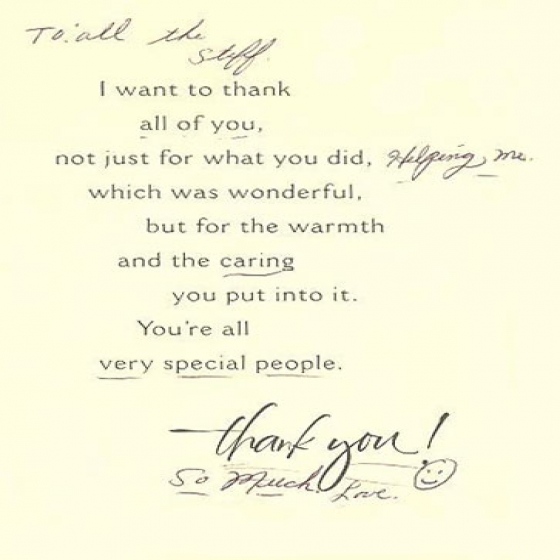 To: all the
staff.
I want to thank
all of you,
not just for what you did, Helping me.
which was wonderful,
but for the warmth
and the caring
you put into it.
You're all
very special people.
thank you!
So Much. Love.